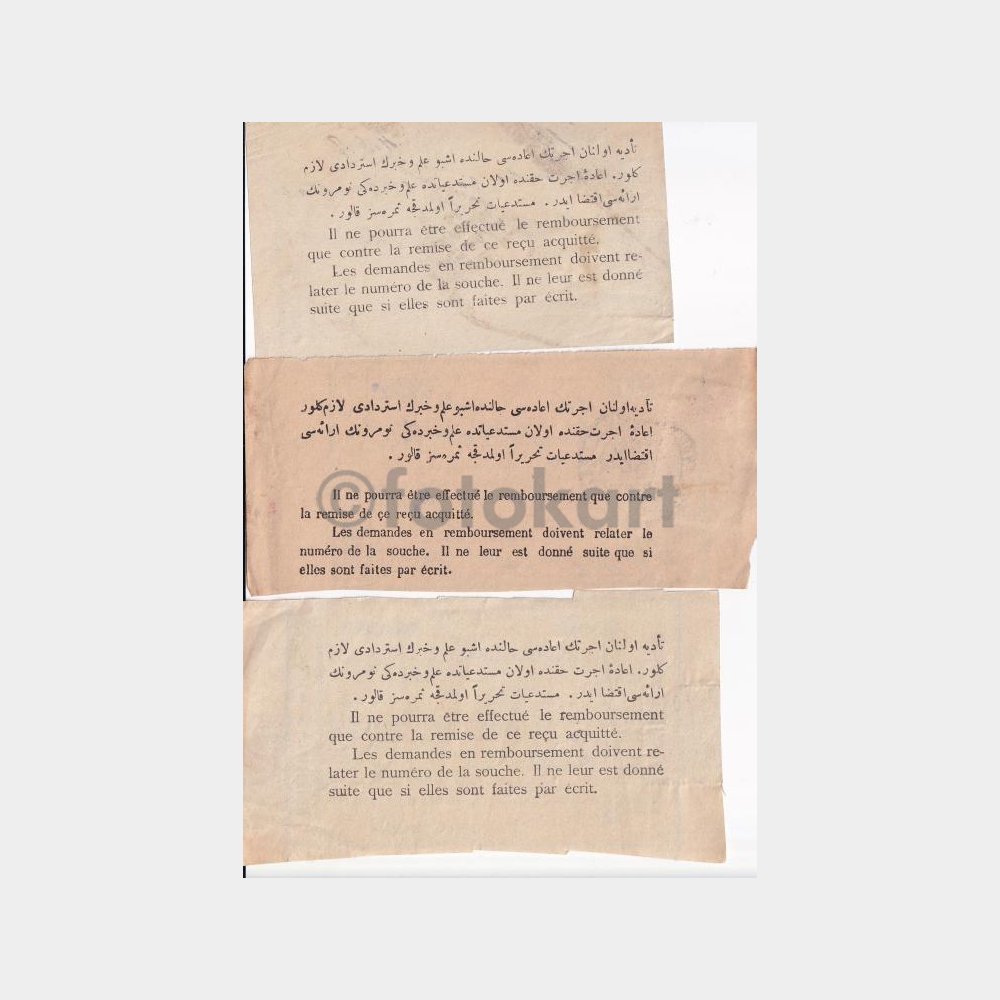 تأديه اولنان اجرتك اعاده‌سی حالنده اشبو علم و خبرك استردادی لازم
كلور. اعادۀ اجرت حقنده اولان مستدعياتده علم و خبرده‌كی نومرونك
ارائه‌سی اقتضا ايدر . مستدعيات تحريراً اولمدقجه ثمره‌سز قالور .
Il ne pourra être effectué le remboursement
que contre la remise de ce reçu acquitté.
Les demandes en remboursement doivent re-
later le numéro de la souche. Il ne leur est donné
suite que si elles sont faites par écrit.
تأديه اولنان اجرتك اعاده‌سی حالنده اشبو علم و خبرك استردادی لازم كلور
اعادۀ اجرت حقنده اولان مستدعياتده علم و خبرده‌كی نومرونك ارائه‌سی
اقتضا ايدر مستدعيات تحريراً اولمدقجه ثمره‌سز قالور .
©fotokart
Il ne pourra être effectué le remboursement que contre
la remise de çe reçu acquitté.
Les demandes en remboursement doivent relater le
numéro de la souche. Il ne leur est donné suite que si
elles sont faites par écrit.
تأديه اولنان اجرتك اعاده‌سی حالنده اشبو علم و خبرك استردادی لازم
كلور. اعادۀ اجرت حقنده اولان مستدعياتده علم و خبرده‌كی نومرونك
ارائه‌سی اقتضا ايدر . مستدعيات تحريراً اولمدقجه ثمره‌سز قالور .
Il ne pourra être effectué le remboursement
que contre la remise de ce reçu acquitté.
Les demandes en remboursement doivent re-
later le numéro de la souche. Il ne leur est donné
suite que si elles sont faites par écrit.